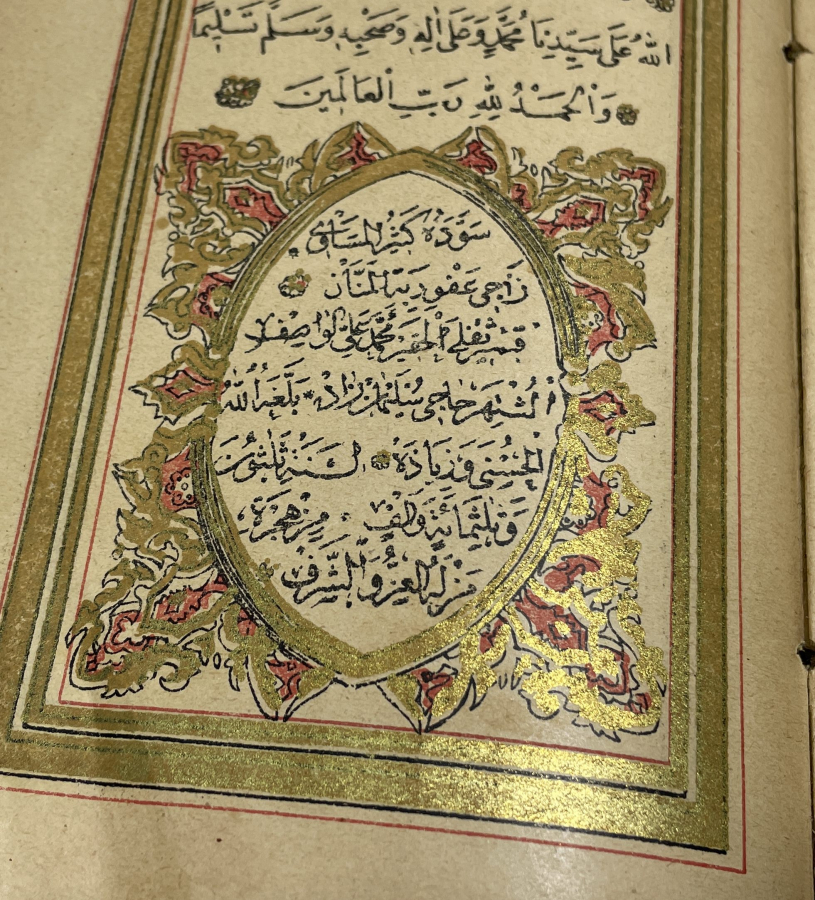 اللهُ عَلَى سَيِّدِنَا مُحَمَّدٍ وَعَلَى اٰلِهِ وَصَحْبِهِ وَسَلَّمَ تَسْلِيمًا
وَالْحَمْدُ لِلّٰهِ رَبِّ الْعَالَمِينَ
سَوَّدَهُ كَثِيرُ الْمَسَاوِي
رَاجِى عَفْوِ رَبِّهِ الْمَنَّانِ
مُحَمَّد عَلِى الْوَاصِفْ
اَلشَّهِيرِ حَاجِى سُلَيْمَانْ زَادَه بَلَّغَهُ اللهُ
الْحُسْنَى وَزِيَادَةً لِسَنَةِ ثَلَثُونَ
وَثَلَثُمِائَةٍ وَاَلْفٍ مِنْ هِجْرَةِ
مَنْ لَهُ الْعِزُّ وَالشَّرَفُ